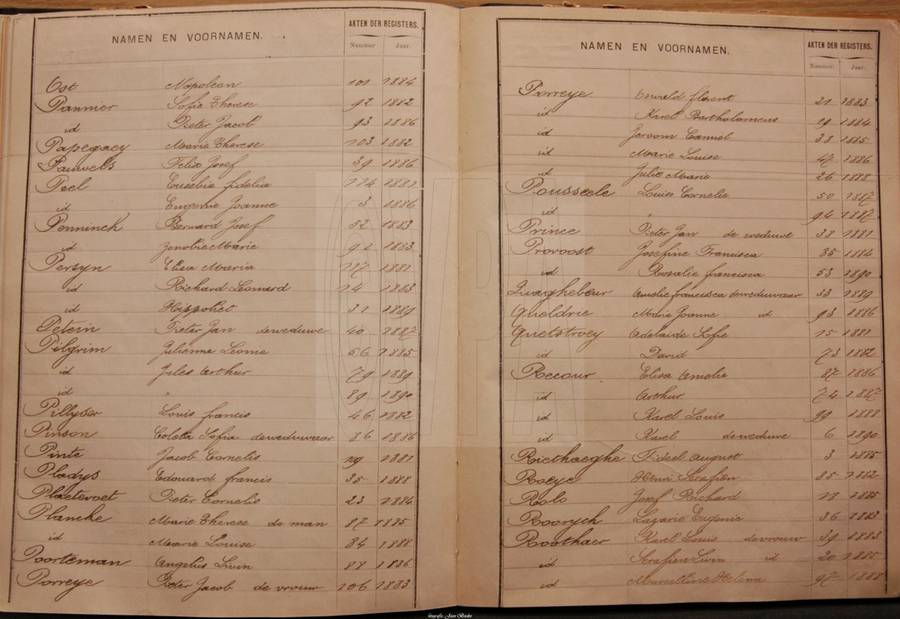 NAMEN EN VOORNAMEN.
AKTEN DER REGISTERS.
Nummer Jaar
Ost Napoleon 101 1884
Panmer Sofia Therese 92 1882
id Pieter Jacob 93 1886
Papegaey Marie Therese 103 1882
Pauwels Felix Josef 39 1886
Peel Eusebia fidelia 124
id Eugenie Joanne 3 1886
Penninck Bernard Josef 52 1883
id Marie 1883
Persyn Eliza Maria 1881
id Richard Leonard 14 1883
id Hippoliet 31 1889
Petein Pieter Jan deweduwe 40 1887
Pilgrim Julienne Leonie 66 1885
id Jules Arthur 79 1889
id " 89 1890
Pillyser Louis francis 46 1882
Pinson Coleta Sofia deweduwaar 86 1886
Pinte Jacob Cornelis 1881
Pladys Edouard francis 35 1888
Plaetevoet Pieter Cornelis 23 1884
Planche Marie Therese de man 87 1885
id Marie Louise 84 1888
Poorteman Angelus Livin 88 1886
Porreye Pieter Jacob de vrouw 106 1883
NAMEN EN VOORNAMEN.
AKTEN DER REGISTERS.
Nummer Jaar
Porreye Oswald florent 21 1883
id Karel Bartholomeus 19 1884
id Jeroom Camiel 38 1885
id Marie Louise 47 1886
id Julie Marie 26 1888
Pousseele Louise Cornelie 50 1887
id " 94 1887
Prince Pieter Jan de weduwe 38 1881
Provoost Josefine Francisca 35 1884
id Rosalie francisca 53 1890
Quaghebeur Amelie francisca deweduwaar 33 1889
Queldrie Marie Joanne id 93 1886
Quetstroey Adelaide Sofie 15 1881
id David 73 1882
Recour Elisa Amelie 87 1886
id Arthur 74 1887
id Karel Louis 99 1888
id Karel deweduwe 6 1890
Riethaeghe Fideel August 3 1885
Roeye Henri Serafien 85 1882
Rolo Josef Richard 18 1885
Roorych Lazarie Eugenie 36 1883
Roothaer Karel Louis devrouw 39 1883
id Serafien Livin id 20 1885
id Marcelline Helena 97 1888